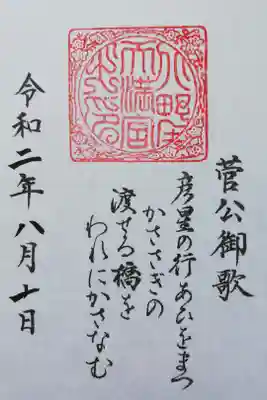 菅公御歌
彦星の行あひをまつ
かささぎの
渡せる橋を
われにかさなむ
令和二年八月十日